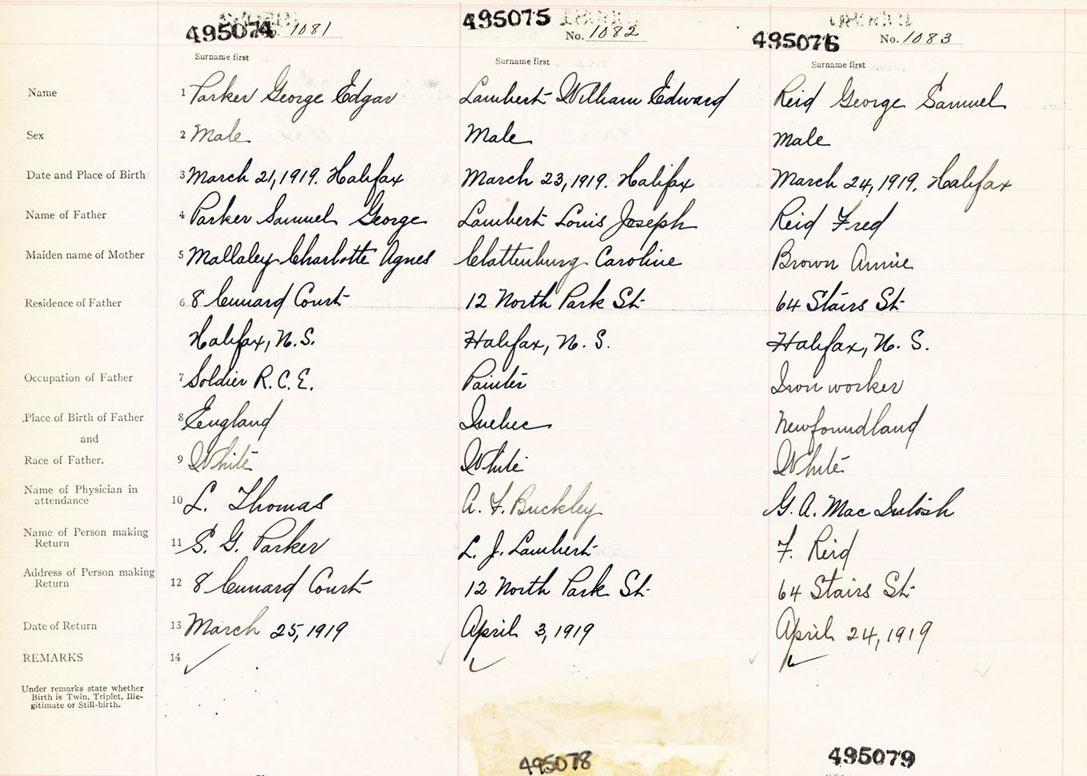 495074 1081 495075 No. 1082 495076 No. 1083
Surname first Surname first Surname first
Name 1 Parker George Edgar Lambert William Edward Reid George Samuel
Sex 2 Male Male Male
Date and Place of Birth 3 March 21, 1919. Halifax March 23, 1919. Halifax March 24, 1919. Halifax
Name of Father 4 Parker Samuel George Lambert Louis Joseph Reid Fred
Maiden name of Mother 5 Mallaley Charlotte Agnes Clattenburg Caroline Brown Annie
Residence of Father 6 8 Cunard Court 12 North Park St. 64 Stairs St.
Halifax, N.S. Halifax, N.S. Halifax, N.S.
Occupation of Father 7 Soldier R.C.E. Painter Iron worker
Place of Birth of Father 8 England Quebec Newfoundland
and
Race of Father. 9 White White White
Name of Physician in
attendance 10 L. Thomas A. F. Buckley G. A. Mac Intosh
Name of Person making
Return 11 S. G. Parker L. J. Lambert F. Reid
Address of Person making
Return 12 8 Cunard Court 12 North Park St. 64 Stairs St.
Date of Return 13 March 25, 1919 April 3, 1919 April 24, 1919
REMARKS 14
Under remarks state whether
Birth is Twin, Triplet, Ille-
gitimate or Still-birth.
495078 495079